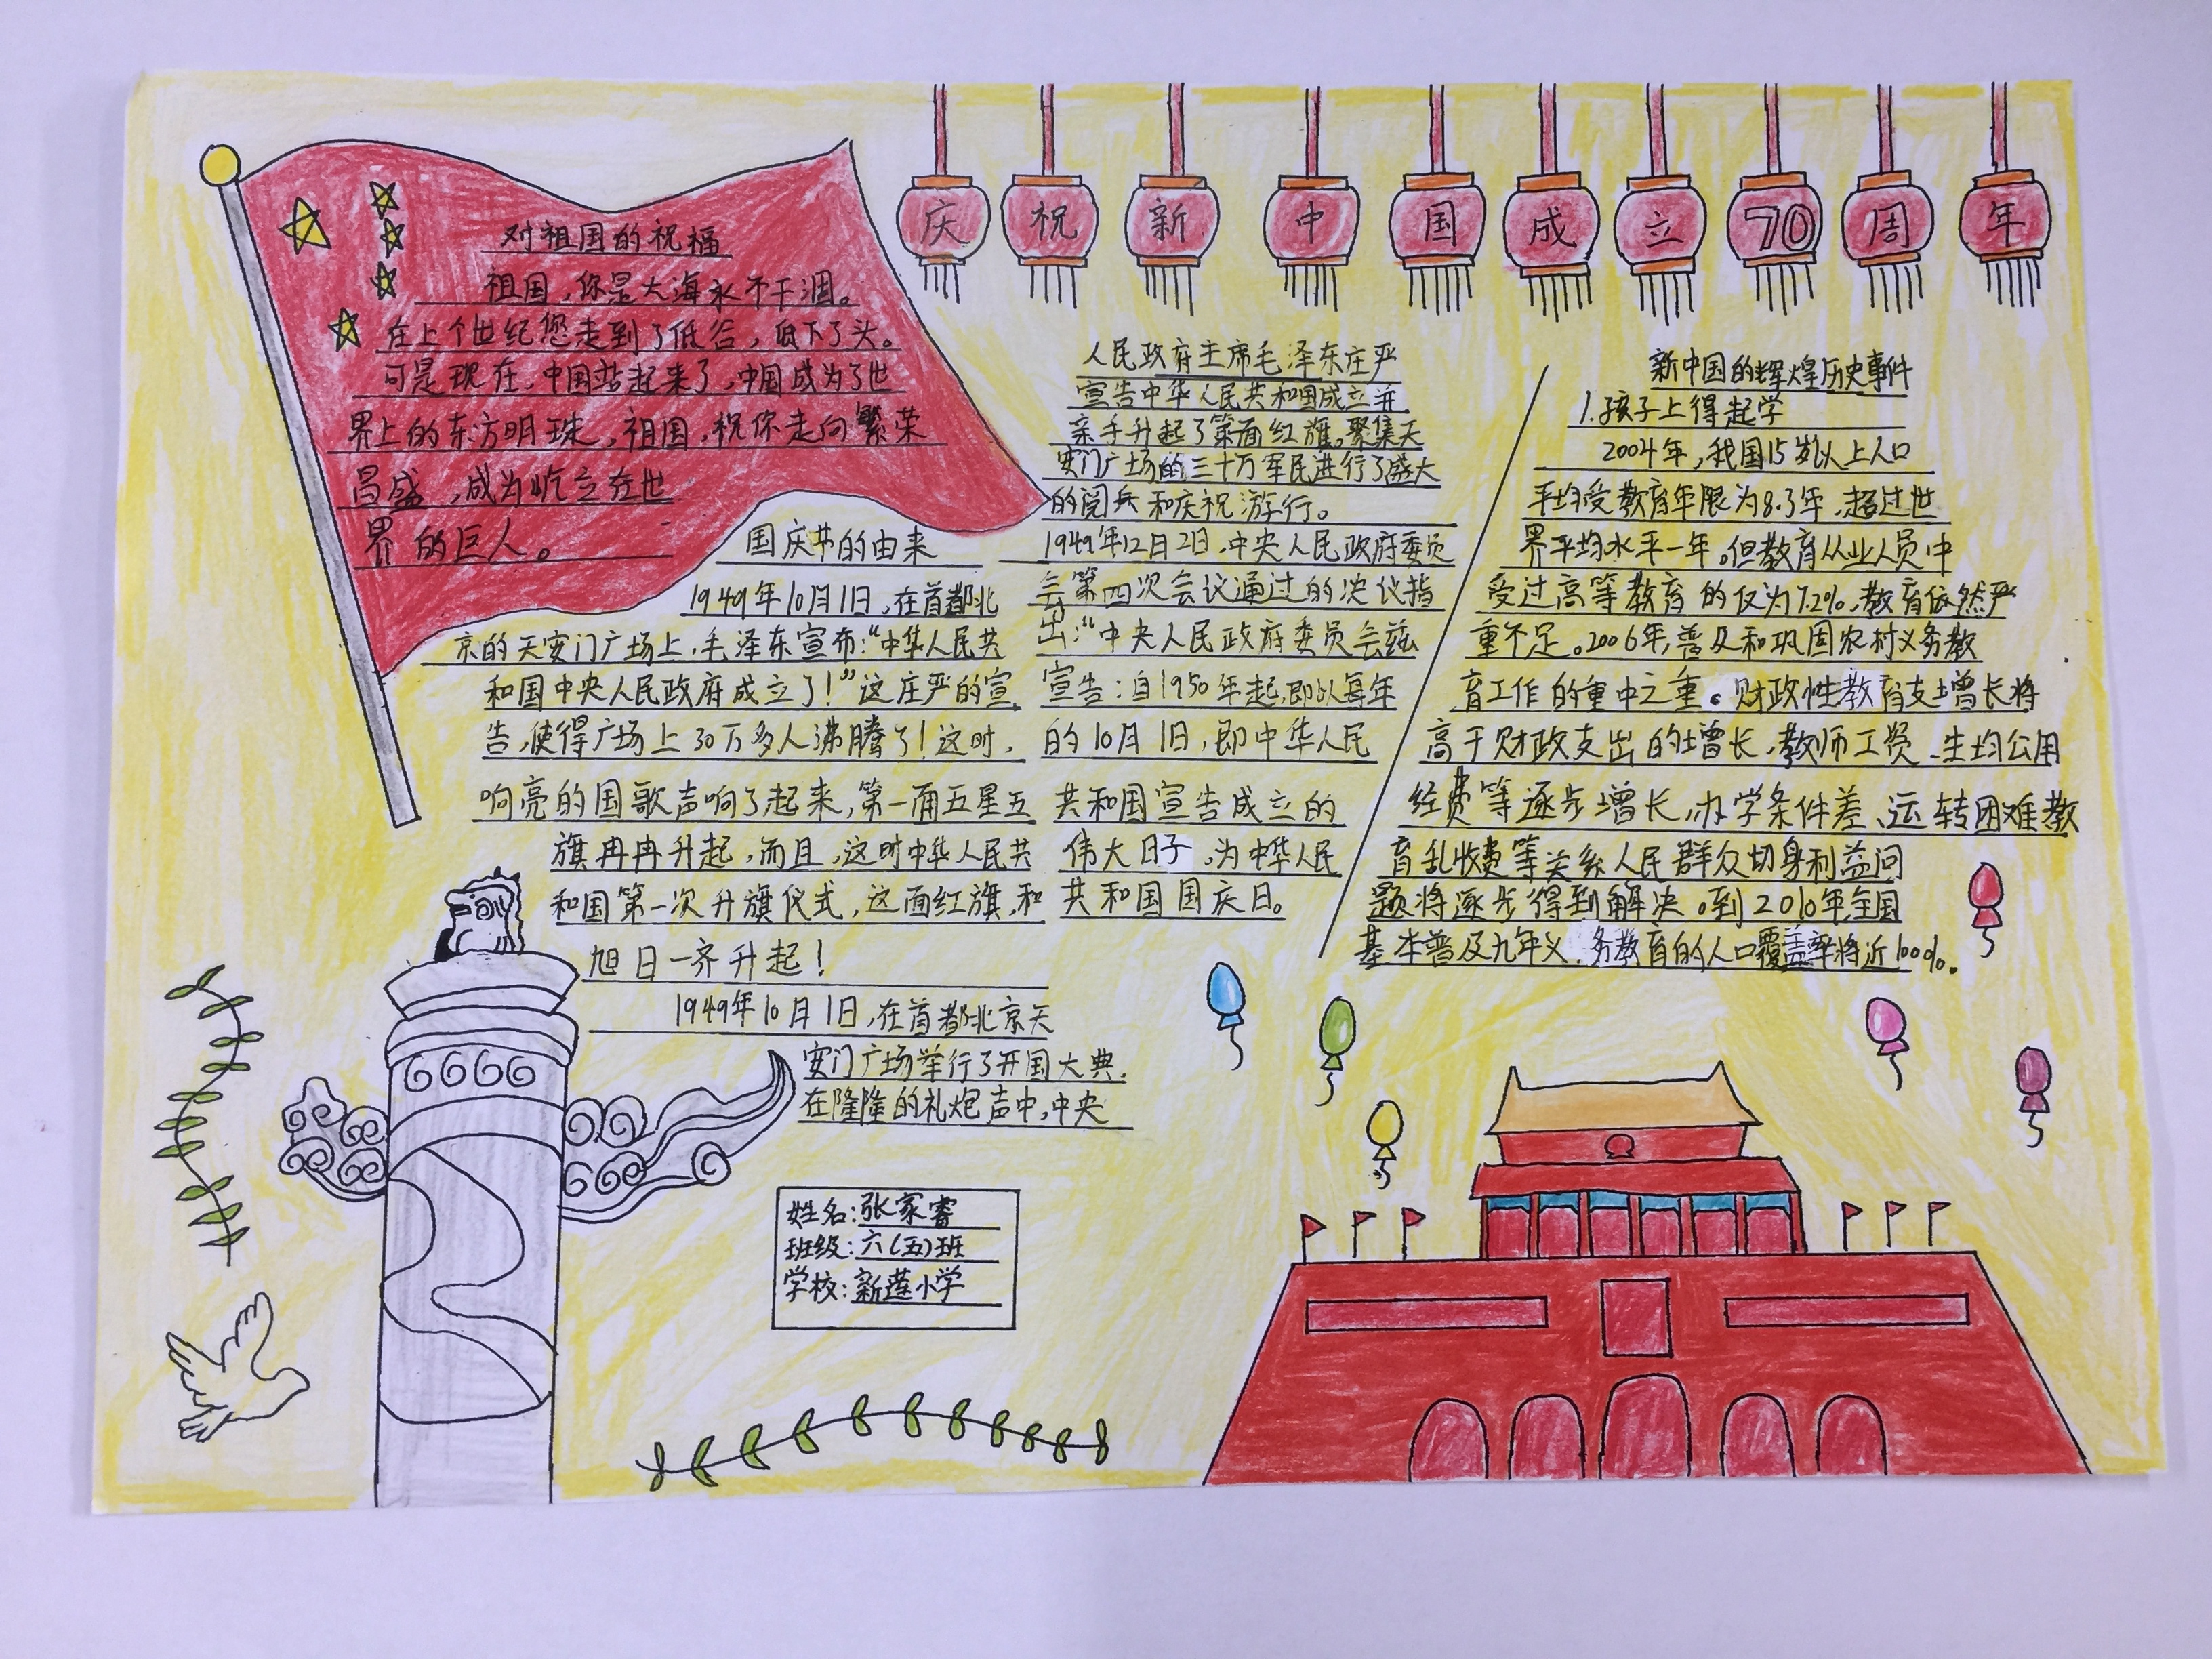 庆祝新中国成立70周年
对祖国的祝福
祖国，你是大海永不干涸。
在上个世纪您走到了低谷，低下了头。
可是现在，中国站起来了，中国成为了世
界上的东方明珠，祖国，祝你走向繁荣
昌盛，成为屹立在世
界的巨人。
国庆节的由来
1949年10月1日，在首都北
京的天安门广场上，毛泽东宣布：“中华人民共
和国中央人民政府成立了！”这庄严的宣
告，使得广场上30万多人沸腾了！这时，
响亮的国歌声响了起来，第一面五星五
旗冉冉升起，而且，这时中华人民共
和国第一次升旗仪式，这面红旗，和
旭日一齐升起！
1949年10月1日，在首都北京天
安门广场举行了开国大典，
在隆隆的礼炮声中，中央
人民政府主席毛泽东庄严
宣告中华人民共和国成立并
亲手升起了第面红旗。聚集天
安门广场的三十万军民进行了盛大
的阅兵和庆祝游行。
1949年12月2日，中央人民政府委员
会第四次会议通过的决议指
出：“中央人民政府委员会兹
宣告：自1950年起，即以每年
的10月1日，即中华人民
共和国宣告成立的
伟大日子，为中华人民
共和国国庆日。
新中国的辉煌历史事件
1.孩子上得起学
2004年，我国15岁以上人口
平均受教育年限为8.3年，超过世
界平均水平一年。但教育从业人员中
受过高等教育的仅为7.2%，教育依然严
重不足。2006年，普及和巩固农村义务教
育工作的重中之重。财政性教育支增长将
高于财政支出的增长，教师工资、生均公用
经费等逐步增长，办学条件差、运转困难教
育乱收费等关系人民群众切身利益问
题将逐步得到解决。到2010年全国
基本普及九年义务教育的人口覆盖率将近100%。
姓名：张家睿
班级：六（五）班
学校：新莲小学